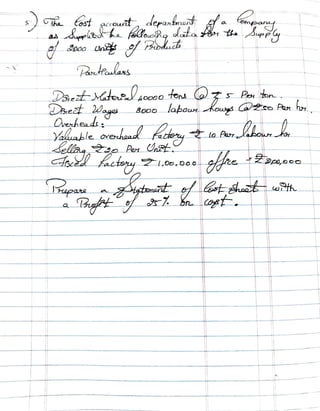 5) The Cost account department of a Company
as supplied the following data for the Supply
of 2000 units of Products
Particulars
Direct Material 10000 tons @ ₹ 5 Per ton.
Direct Wages 8000 labour hours @ Per hr.
Overheads:
Variable overhead Factory ₹ 10 Per labour hr
Selling ₹20 Per Unit.
Fixed Factory ₹ 1,00,000 office - ₹
Prepare a Statement of Cost sheet with
a Profit of 25 % on cost.